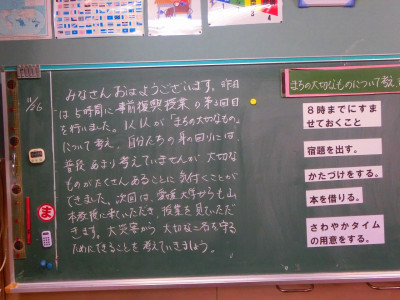 11/26
みなさんおはようございます。昨日
は5時間に事前復興授業の第2回目
を行いました。1人1人が「まちの大切なもの」
について考え、自分たちの身の回りには、
普段あまり考えていませんが大切な
ものがたくさんあることに気付くことが
できました。次回は、愛媛大学からも山
本教授に来ていただき、授業を見ていただ
きます。大災害から大切な を守る
ためにできることを考えていきましょう。
ま
まちの大切なものについて考え
8時までにすま
せておくこと
宿題を出す。
かたづけをする。
本を借りる。
さわやかタイム
の用意をする。